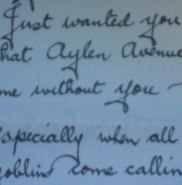 Just wanted you
that Aylen Avenue
me without you -
especially when all
goblins come callin